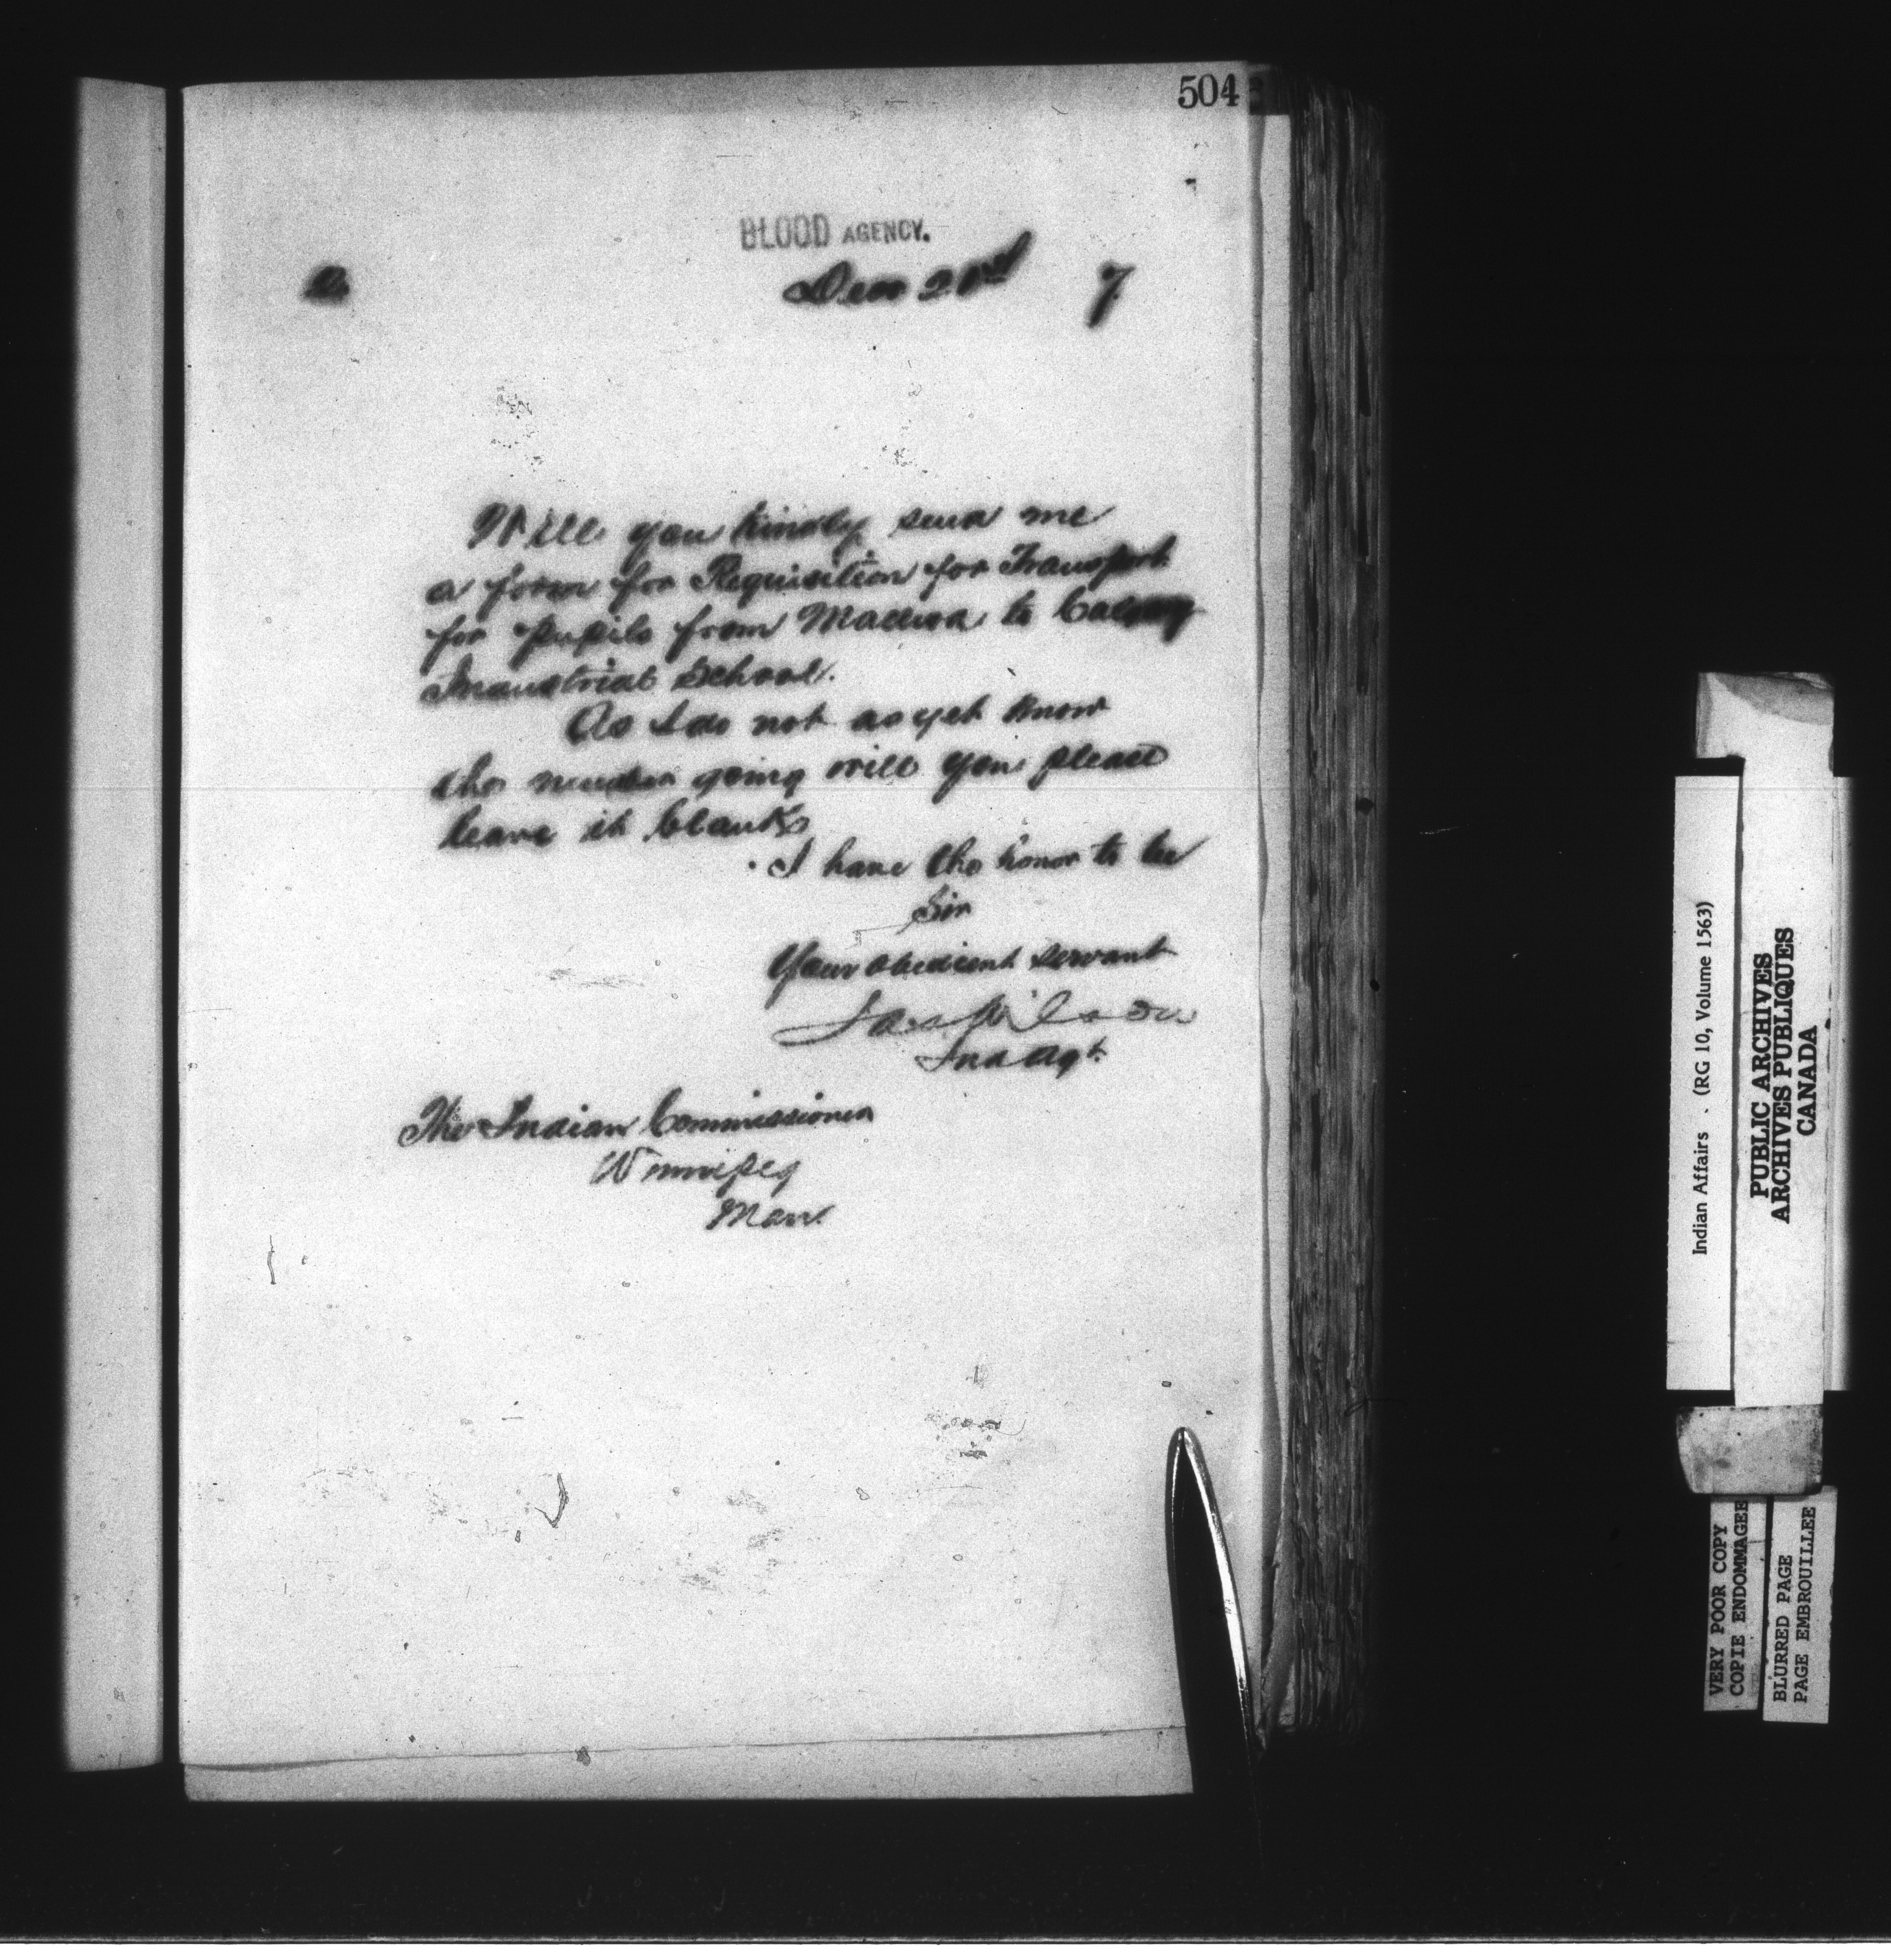 504
BLOOD AGENCY.
Dec 7
Will you kindly send me
a form for Requisition for Transport
for pupils from Macleod to Calgary
Industrial School.
As I do not as yet know
the number going will you please
leave it blank
I have the honor to be
Sir
Your obedient servant
Jas Wilson
Ind Agt.
The Indian Commissioner
Winnipeg
Man.
Indian Affairs . (RG 10, Volume 1563)
PUBLIC ARCHIVES
ARCHIVES PUBLIQUES
CANADA
VERY POOR COPY
COPIE ENDOMMAGEE
BLURRED PAGE
PAGE EMBROUILLEE